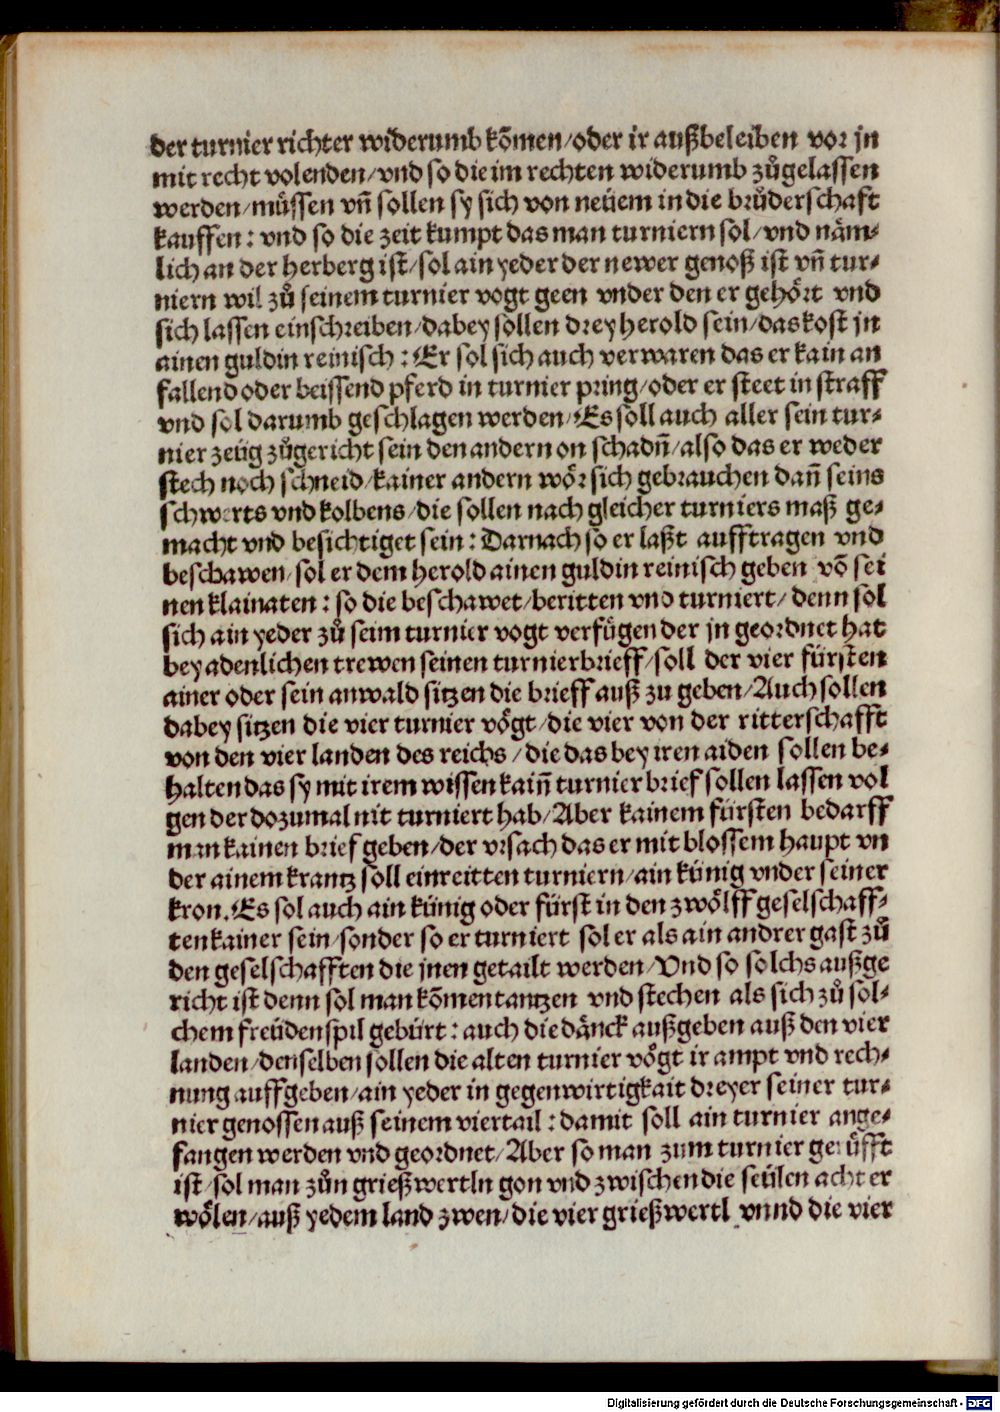 der turnier richter widerumb kõmen/oder ir außbeleiben vor jn
mit recht volenden/vnd so die im rechten widerumb zůgelassen
werden/müssen vñ sollen sy sich von neüem in die brůderschaft
kauffen: vnd so die zeit kumpt das man turniern sol/vnd näm⸗
lich an der herberg ist/sol ain yeder der newer genoß ist vñ tur⸗
niern wil zů seinem turnier vogt geen vnder den er gehört vnd
sich lassen einschreiben/dabey sollen drey herold sein/das kost jn
ainen guldin reinisch: Er sol sich auch verwaren das er kain an
fallend oder beissend pferd in turnier pring/oder er steet in straff
vnd sol darumb geschlagen werden/Es soll auch aller sein tur⸗
nier zeüg zůgericht sein den andern on schadñ/also das er weder
stech noch schneid/kainer andern wör sich gebrauchen dañ seins
schwerts vnd kolbens/die sollen nach gleicher turniers maß ge⸗
macht vnd besichtiget sein: Darnach so er laßt aufftragen vnd
beschawen/sol er dem herold ainen guldin reinisch geben võ sei
nen klainaten: so die beschawet/beritten vnd turniert/denn sol
sich ain yeder zů seim turnier vogt verfügen der jn geordnet hat
bey adenlichen trewen seinen turnierbrieff/soll der vier fürsten
ainer oder sein anwald sitzen die brieff auß zu geben/Auch sollen
dabey sitzen die vier turnier vögt/die vier von der ritterschafft
von den vier landen des reichs/die das bey iren aiden sollen be⸗
halten das sy mit irem wissen kaiñ turnier brief sollen lassen vol
gen der dozumal nit turniert hab/Aber kainem fürsten bedarff
man kainen brief geben/der vrsach das er mit blossem haupt vn
der ainem krantz soll einreitten turniern/ain künig vnder seiner
kron. Es sol auch ain künig oder fürst in den zwölff geselschaff⸗
ten kainer sein/sonder so er turniert sol er als ain andrer gast zů
den geselschafften die jnen getailt werden/Vnd so solchs außge
richt ist denn sol man kõmen tantzen vnd stechen als sich zů sol⸗
chem freüdenspil gebürt: auch die dänck außgeben auß den vier
landen/denselben sollen die alten turnier vögt ir ampt vnd rech⸗
nung auffgeben/ain yeder in gegenwirtigkait dreyer seiner tur⸗
nier genossen auß seinem viertail: damit soll ain turnier ange⸗
fangen werden vnd geordnet/Aber so man zum turnier gerüfft
ist/sol man zůn grießwertln gon vnd zwischen die seülen acht er
wölen/auß yedem land zwen/die vier grießwertl vnnd die vier
Digitalisierung gefördert durch die Deutsche Forschungsgemeinschaft - DFG